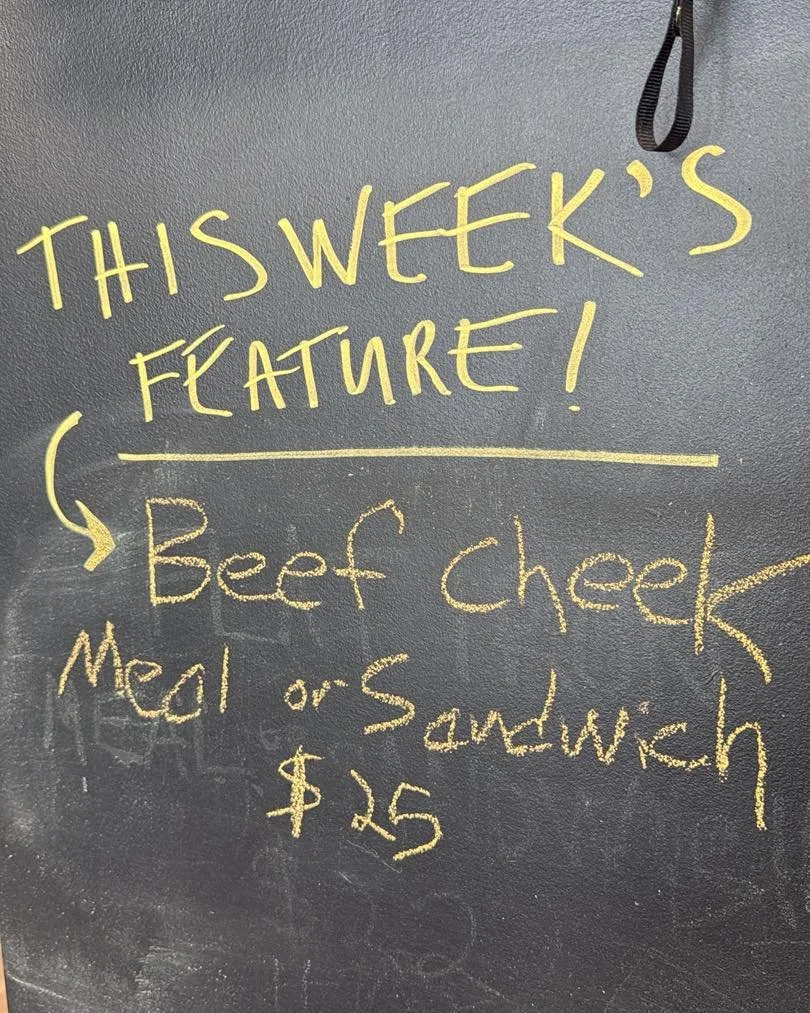 THIS WEEK'S
FEATURE!
Beef cheek
Meal or Sandwich
$25